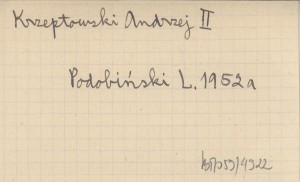 Krzeptowski Andrzej II
Podobiński L. 1952a